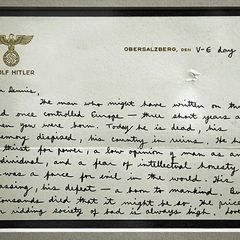 OBERSALZBERG, DEN V-E day
OLF HITLER
Dennis,
The man who might have written on th
once controlled Europe — three short years a
en you were born. Today he is dead, his
emory despised, his country in ruins. He h
thirst for power, a low opinion of man as an
dividual, and a fear of intellectual honesty
was a force for evil in the world. His
assing, his defeat — a boon to mankind. Bu
ousands died that it might be so. The price
r ridding society of bad is always high. Lov